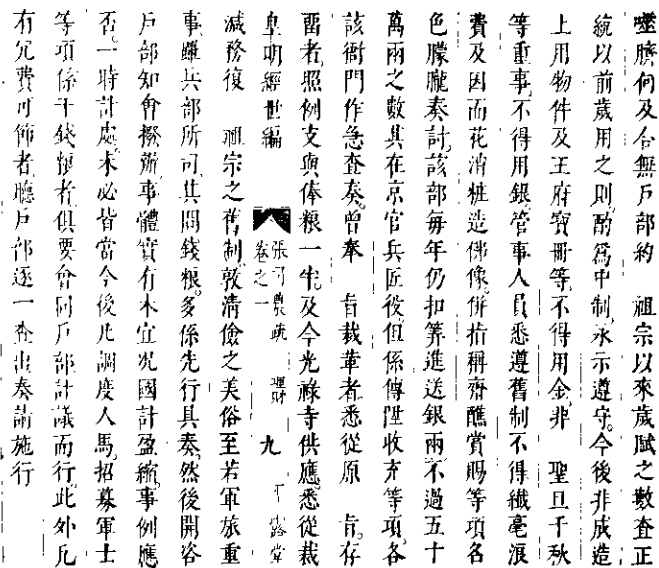 噬臍何及合無戶部約　祖宗以來歲賦之數查正
統以前歲用之則酌爲中制永示遵守今後非成造
上用物件及王府寶冊等不得用金非　聖旦千秋
等重事不得用銀管事人員悉遵舊制不得纖毫浪
費及因而花消粧造佛像併指稱齋醮賞賜等項名
色朦朧奏討該部每年仍扣筭進送銀兩不過五十
萬兩之數其在京官兵匠役但係傳陞收充等項各
該衙門作急查奏曾奉　旨裁革者悉從原　旨存
留者照例支與俸粮一半及今光祿寺供應悉從裁
皇明經世編　張司農疏　卷之一　理財　九　平露堂
減務復　祖宗之舊制敦清儉之美俗至若軍旅重
事雖兵部所司其間錢粮多係先行具奏然後開咨
戶部知會撥辦事體實有未宜况國計盈縮事例應
否一時計處未必皆當今後凡調度人馬招募軍士
等項係干錢粮者俱要會同戶部計議而行此外凡
有冗費可節者聽戶部逐一查出奏請施行